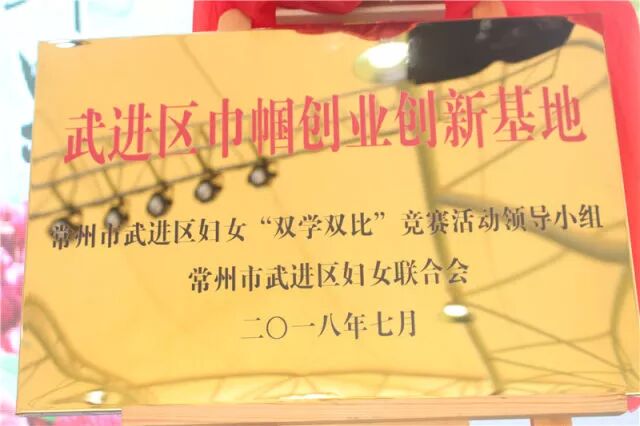 武进区巾帼创业创新基地
常州市武进区妇女“双学双比”竞赛活动领导小组
常州市武进区妇女联合会
二〇一八年七月